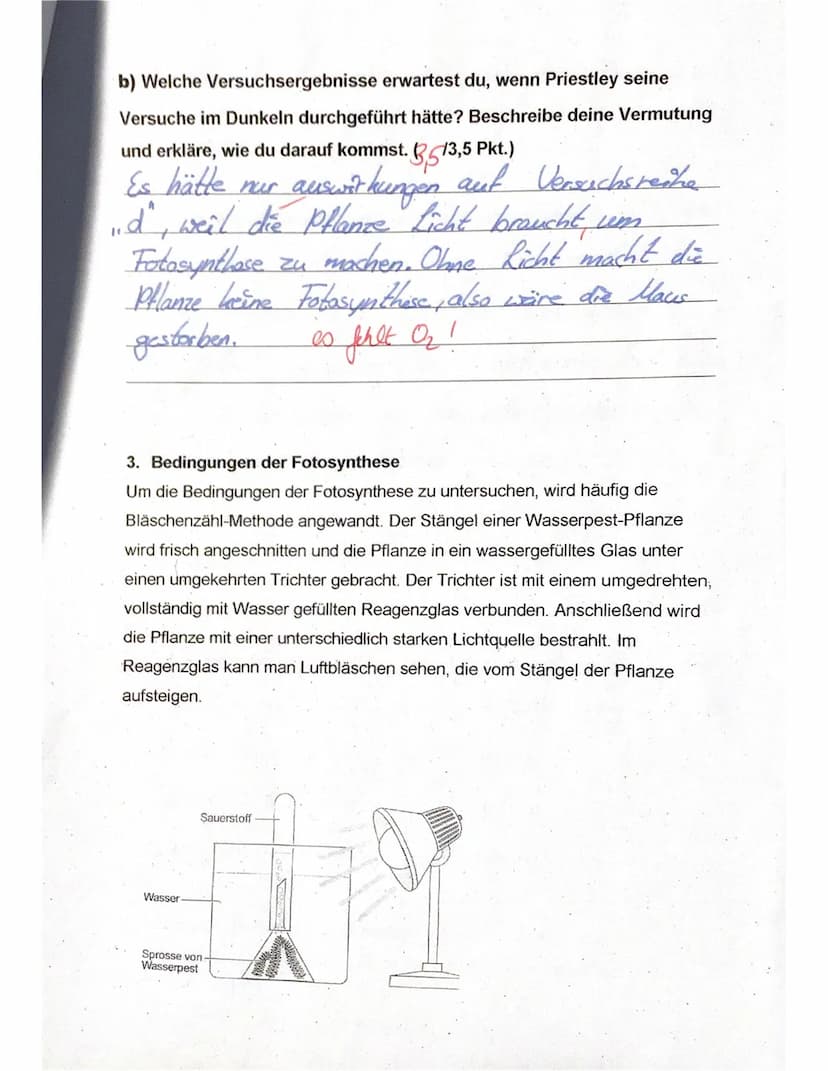 b) Welche Versuchsergebnisse erwartest du, wenn Priestley seine
Versuche im Dunkeln durchgeführt hätte? Beschreibe deine Vermutung
und erkläre, wie du darauf kommst. (3,5/3,5 Pkt.)
Es hätte nur auswirkungen auf Versuchsreihe
„d", weil die Pflanze Licht braucht, um
Fotosynthase zu machen. Ohne Licht macht die
Pflanze keine Fotosynthese, also wäre die Maus
gestorben. es fehlt O₂!
3. Bedingungen der Fotosynthese
Um die Bedingungen der Fotosynthese zu untersuchen, wird häufig die
Bläschenzähl-Methode angewandt. Der Stängel einer Wasserpest-Pflanze
wird frisch angeschnitten und die Pflanze in ein wassergefülltes Glas unter
einen umgekehrten Trichter gebracht. Der Trichter ist mit einem umgedrehten,
vollständig mit Wasser gefüllten Reagenzglas verbunden. Anschließend wird
die Pflanze mit einer unterschiedlich starken Lichtquelle bestrahlt. Im
Reagenzglas kann man Luftbläschen sehen, die vom Stängel der Pflanze
aufsteigen.
Sauerstoff
Wasser
Sprosse von
Wasserpest